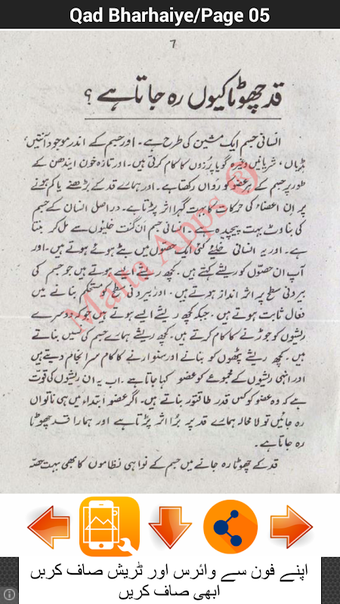 Qad Bharhaiye/Page 05
7
قد چھوٹا کیوں رہ جاتا ہے ؟
انسانی جسم ایک مشین کی طرح ہے۔ اور جسم کے اندر موجود آنتیں
ہڈیاں، شریانیں وغیرہ گویا پرزوں کا کام کرتی ہیں۔ اور تازہ خون ایندھن کے
طور پر جسم کے ہر عضو کو رواں رکھتا ہے۔ اور ہمارے قد کے بڑھنے یا کم بڑھنے
پر ان اعضاء کی حرکات کا بہت گہرا اثر پڑتا ہے۔ دراصل انسان کے جسم
کی بناوٹ بہت پیچیدہ ہے۔ انسانی جسم ان گنت خلیوں سے مل کر بنتا
ہے۔ اور یہ انسانی خلیے کئی ایک حصوں میں بٹے ہوئے ہوتے ہیں۔ اور
آپ ان حصوں کو ریشے کہتے ہیں۔ کچھ ریشے ایسے ہوتے ہیں جو جسم کی
بیرونی سطح پر اثر انداز ہوتے ہیں۔ اور بیرونی سطح کو مستحکم بنانے میں
فعال ثابت ہوتے ہیں۔ جبکہ کچھ ریشے ایسے ہوتے ہیں جو کہ دوسرے
ریشوں کو جوڑنے کا کام کرتے ہیں۔ کچھ ریشے ہمارے جسم کی نسیں بناتے
ہیں۔ کچھ ریشے پٹھوں کو بنانے اور سنوارنے کا کام سرانجام دیتے ہیں
اور انہی ریشوں کے مجموعے کو عضو کہا جاتا ہے۔ اب یہ ان ریشوں کی قوت
ہے کہ وہ عضو کو کس قدر طاقتور بناتے ہیں۔ اگر عضو ابتداء میں ہی ناتواں
رہ جائیں تو لا محالہ ہمارے قد پر برا اثر پڑتا ہے اور ہمارا قد چھوٹا
رہ جاتا ہے۔
قد کے چھوٹا رہ جانے میں جسم کے نواہی نظاموں کا بھی بہت حصّہ
Malta Apps ®
اپنے فون سے وائرس اور ٹریش صاف کریں
ابھی صاف کریں